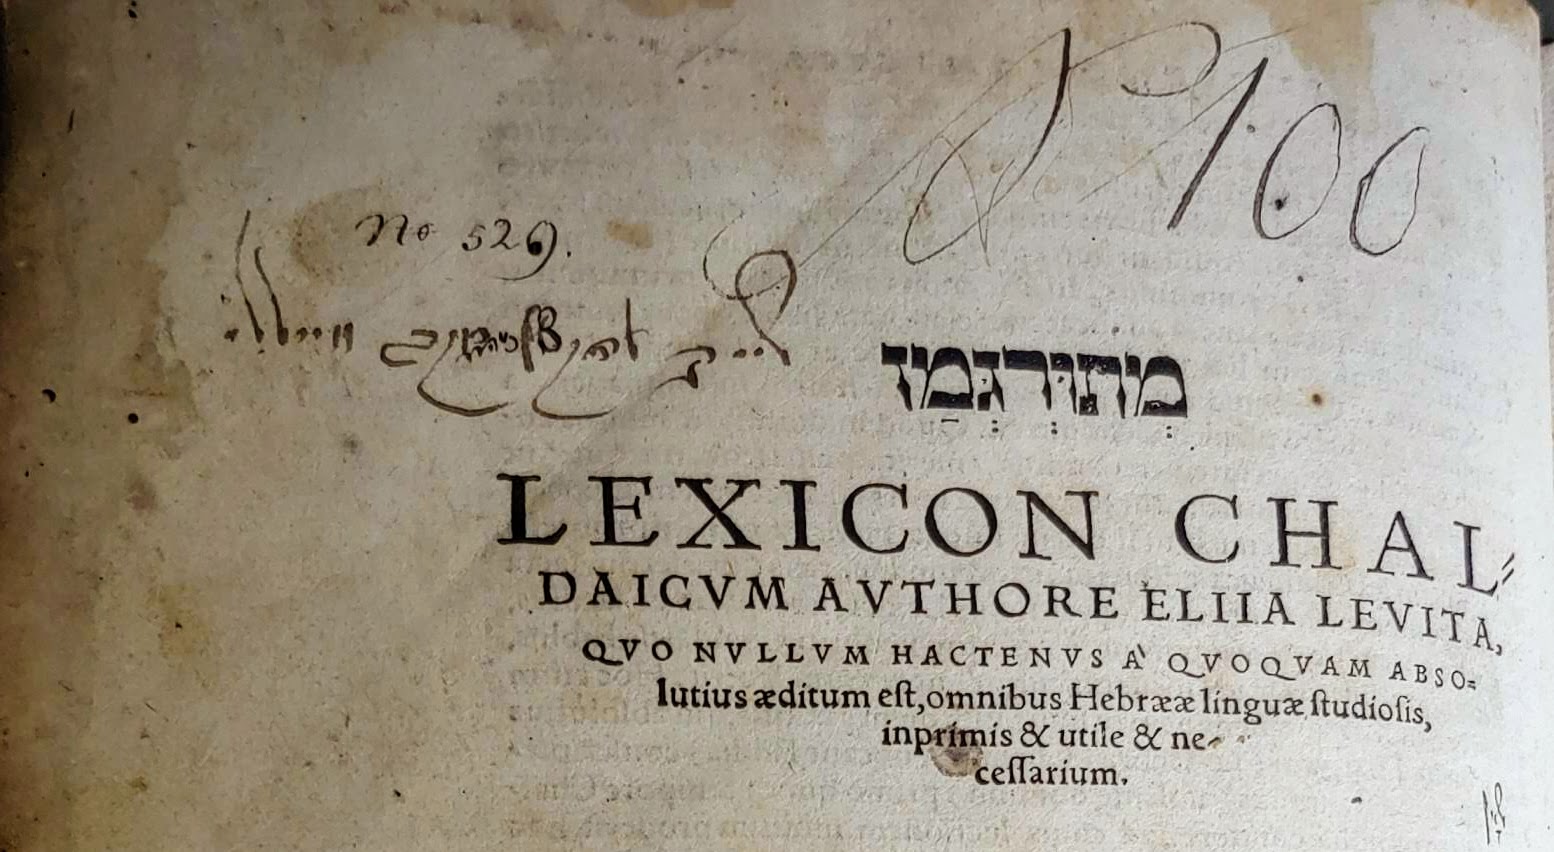 100
No 529.
מְתוּרְגְּמַן
LEXICON CHAL⸗
DAICVM AVTHORE ELIIA LEVITA,
QVO NVLLVM HACTENVS A` QVOQVAM ABSO⸗
lutius æditum eſt, omnibus Hebrææ linguæ ſtudioſis,
inprimis & utile & ne-
ceſſarium.